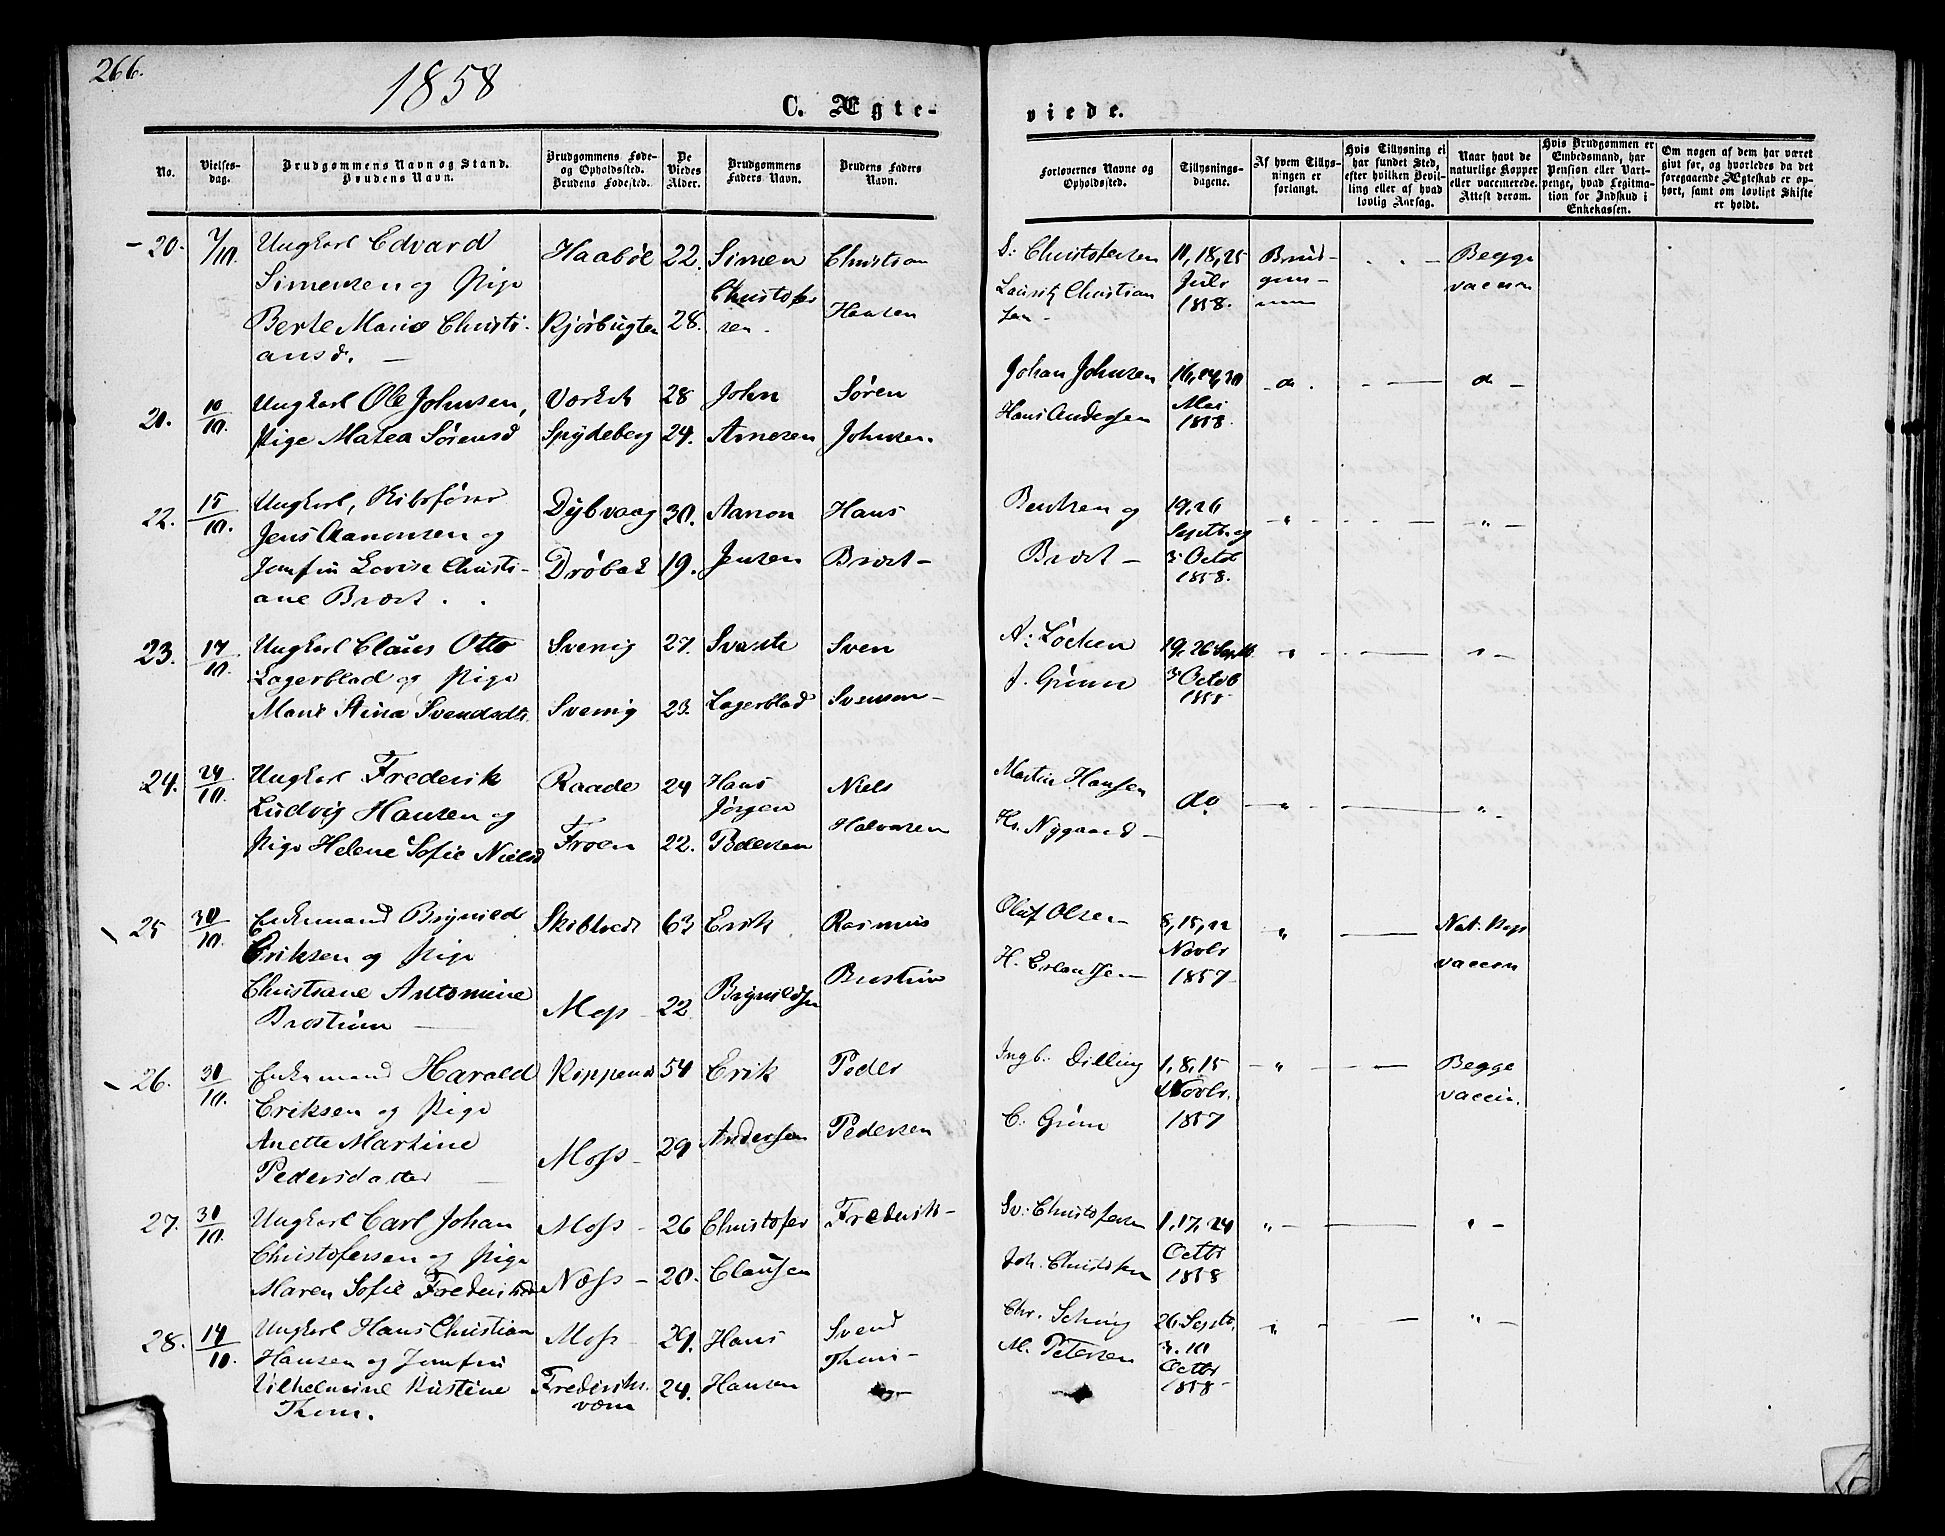 266.
1858
C. Ægte-
viede.
No.
Vielses-dag.
Brudgommens Navn og Stand.
Brudens Navn.
Brudgommens Føde-
og Opholdssted.
Brudens Fødested.
De
Viedes
Alder.
Brudgommens
Faders Navn.
Brudens Faders
Navn.
Forlovernes Navne og
Opholdssted.
Tillysnings-
dagene.
Af hvem Tillys-
ningen er
forlangt.
Hvis Tillysning ei
har fundet Sted,
efter hvilken Bevil-
ling eller af hvad
lovlig Aarsag.
Naar havt de
naturlige Kopper
eller vaccinerede.
Attest derom.
Hvis Brudgommen er
Embedsmand, har
Pension eller Vart-
penge, hvad Legitma-
tion for Indskud i
Enkekassen.
Om nogen af dem har været
givt før, og hvorledes da det
foregaaende Ægteskab er op-
hørt, samt om lovligt Skifte
er holdt.
20. 7/10. Ungkarl Edvard Haabøl 22. Simen Christian S: Christofersen 11, 18, 25 Brud- Begge
Simensen og Pige Christofer Lauritz Christian Juli gom- vaccin
Berte Marie Christi- 28. sen. Hansen sen 1858. men
ansd.
21. 10/10. Ungkarl Ole Johnsen, 28 John Søren Johan Johnsen do. do
Pige Matea Sørensd Spydeberg 24. Arnesen Johnsen. Hans Andersen Mai 1858.
22. 15/10. Ungkarl, Dybvaag 30. Aanon Hans Bentzen og 19, 26
Jens Aanonsen og Septb. og
Jomfru Lovise Christi- Drøbak 19. Jensen 3 Octob
ane 1858.
23. 17/10. Ungkarl Claus Otto Sverrig 27. Sven A: Løcken 19, 26 Septb.
Lagerblad og Pige J. Grüner 3 Octob
Marie Stina Svendsdtr. Sverrig 23. Lagerblad Svenson 1858
24. 24/10. Ungkarl Frederik Raade 24 Hans Niels Martin Hansen do
Ludvig Hansen og Jørgen
Pige Helene Sofie Nielsd Froen 22. Pedersen Halvorsen Nygaard
25 30/10. Enkemand Brynild Skibtvedt 63 Erik Rasmus Oluf Olsen 8, 15, 22 Nat. Kop
Eriksen og Pige Novbr vaccin
Christiane Antomine Moss 22 Brynildsen H. Erlandsen 1857
Brostrüm
26. 30/10. Enkemand Harald 54 Erik Peder Ingb. Dilling 1, 8, 15 Begge
Eriksen og Pige Novbr. vaccin.
Anette Martine Moss 29 Andersen Pedersen 1857
Pedersdatter
27. 30/10. Ungkarl Carl Johan Moss 26 Christofer Frederik Christofersen 17, 24
Christofersen og Pige Octbr
Maren Sofie Frederiksd 20. Clausen 1858
28. 14/10. Ungkarl Hans Christian Moss 29. Hans Svend 26 Septb.
Hansen og Jomfru Thom M. Petersen 3. 10
Vilhelmine Kristine Frederiks- 24. Hansen Octbr
Thom. værn 1858